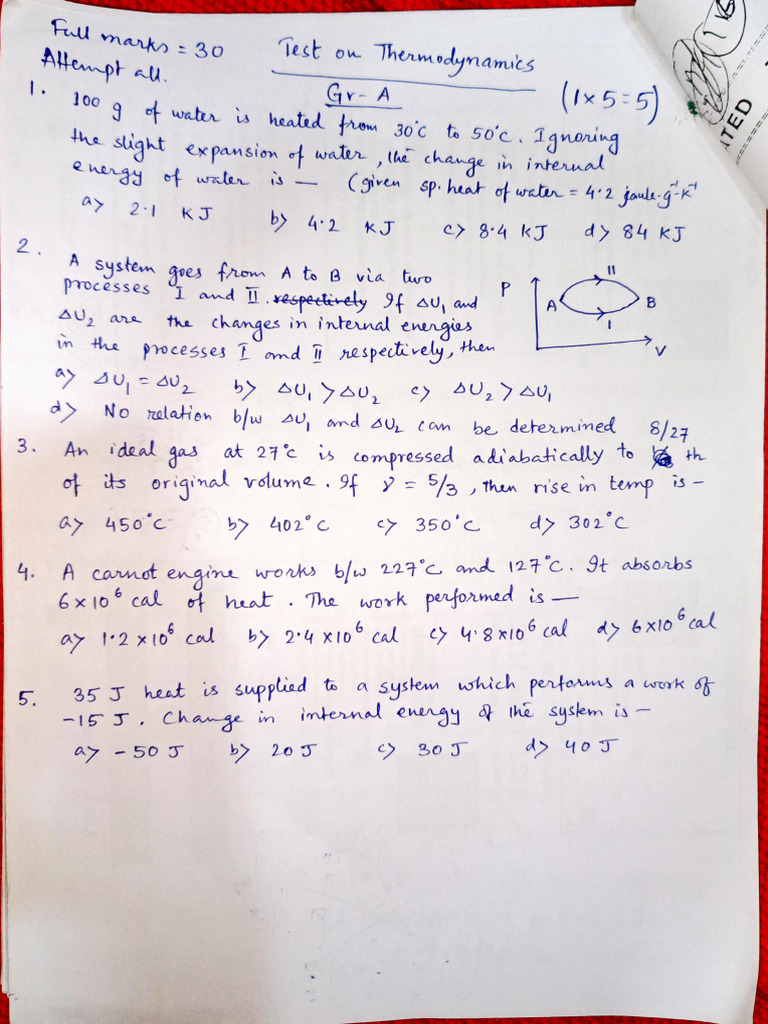 Full marks = 30
Test on Thermodynamics
Attempt all.
Gr-A
(1 x 5 = 5)
1. 100 g of water is heated from 30°C to 50°C. Ignoring
the slight expansion of water, the change in internal
energy of water is — (given sp. heat of water = 4.2 jaule-g⁻¹-K⁻¹
a> 2.1 KJ b> 4.2 KJ c> 8.4 KJ d> 84 KJ
2. A system goes from A to B via two
processes I and II. respectively If ΔU₁ and
ΔU₂ are the changes in internal energies
in the processes I and II respectively, then
P
II
A
B
I
V
a> ΔU₁ = ΔU₂ b> ΔU₁ > ΔU₂ c> ΔU₂ > ΔU₁
d> No relation b/w ΔU₁ and ΔU₂ can be determined
8/27
3. An ideal gas at 27°C is compressed adiabatically to th
of its original volume. If γ = 5/3, then rise in temp is –
a> 450°C b> 402°C c> 350°C d> 302°C
4. A carnot engine works b/w 227°C and 127°C. It absorbs
6 x 10⁶ cal of heat. The work performed is —
a> 1.2 x 10⁶ cal b> 2.4 x 10⁶ cal c> 4.8 x 10⁶ cal d> 6 x 10⁶ cal
5. 35 J heat is supplied to a system which performs a work of
-15 J. Change in internal energy of the system is –
a> - 50 J b> 20 J c> 30 J d> 40 J